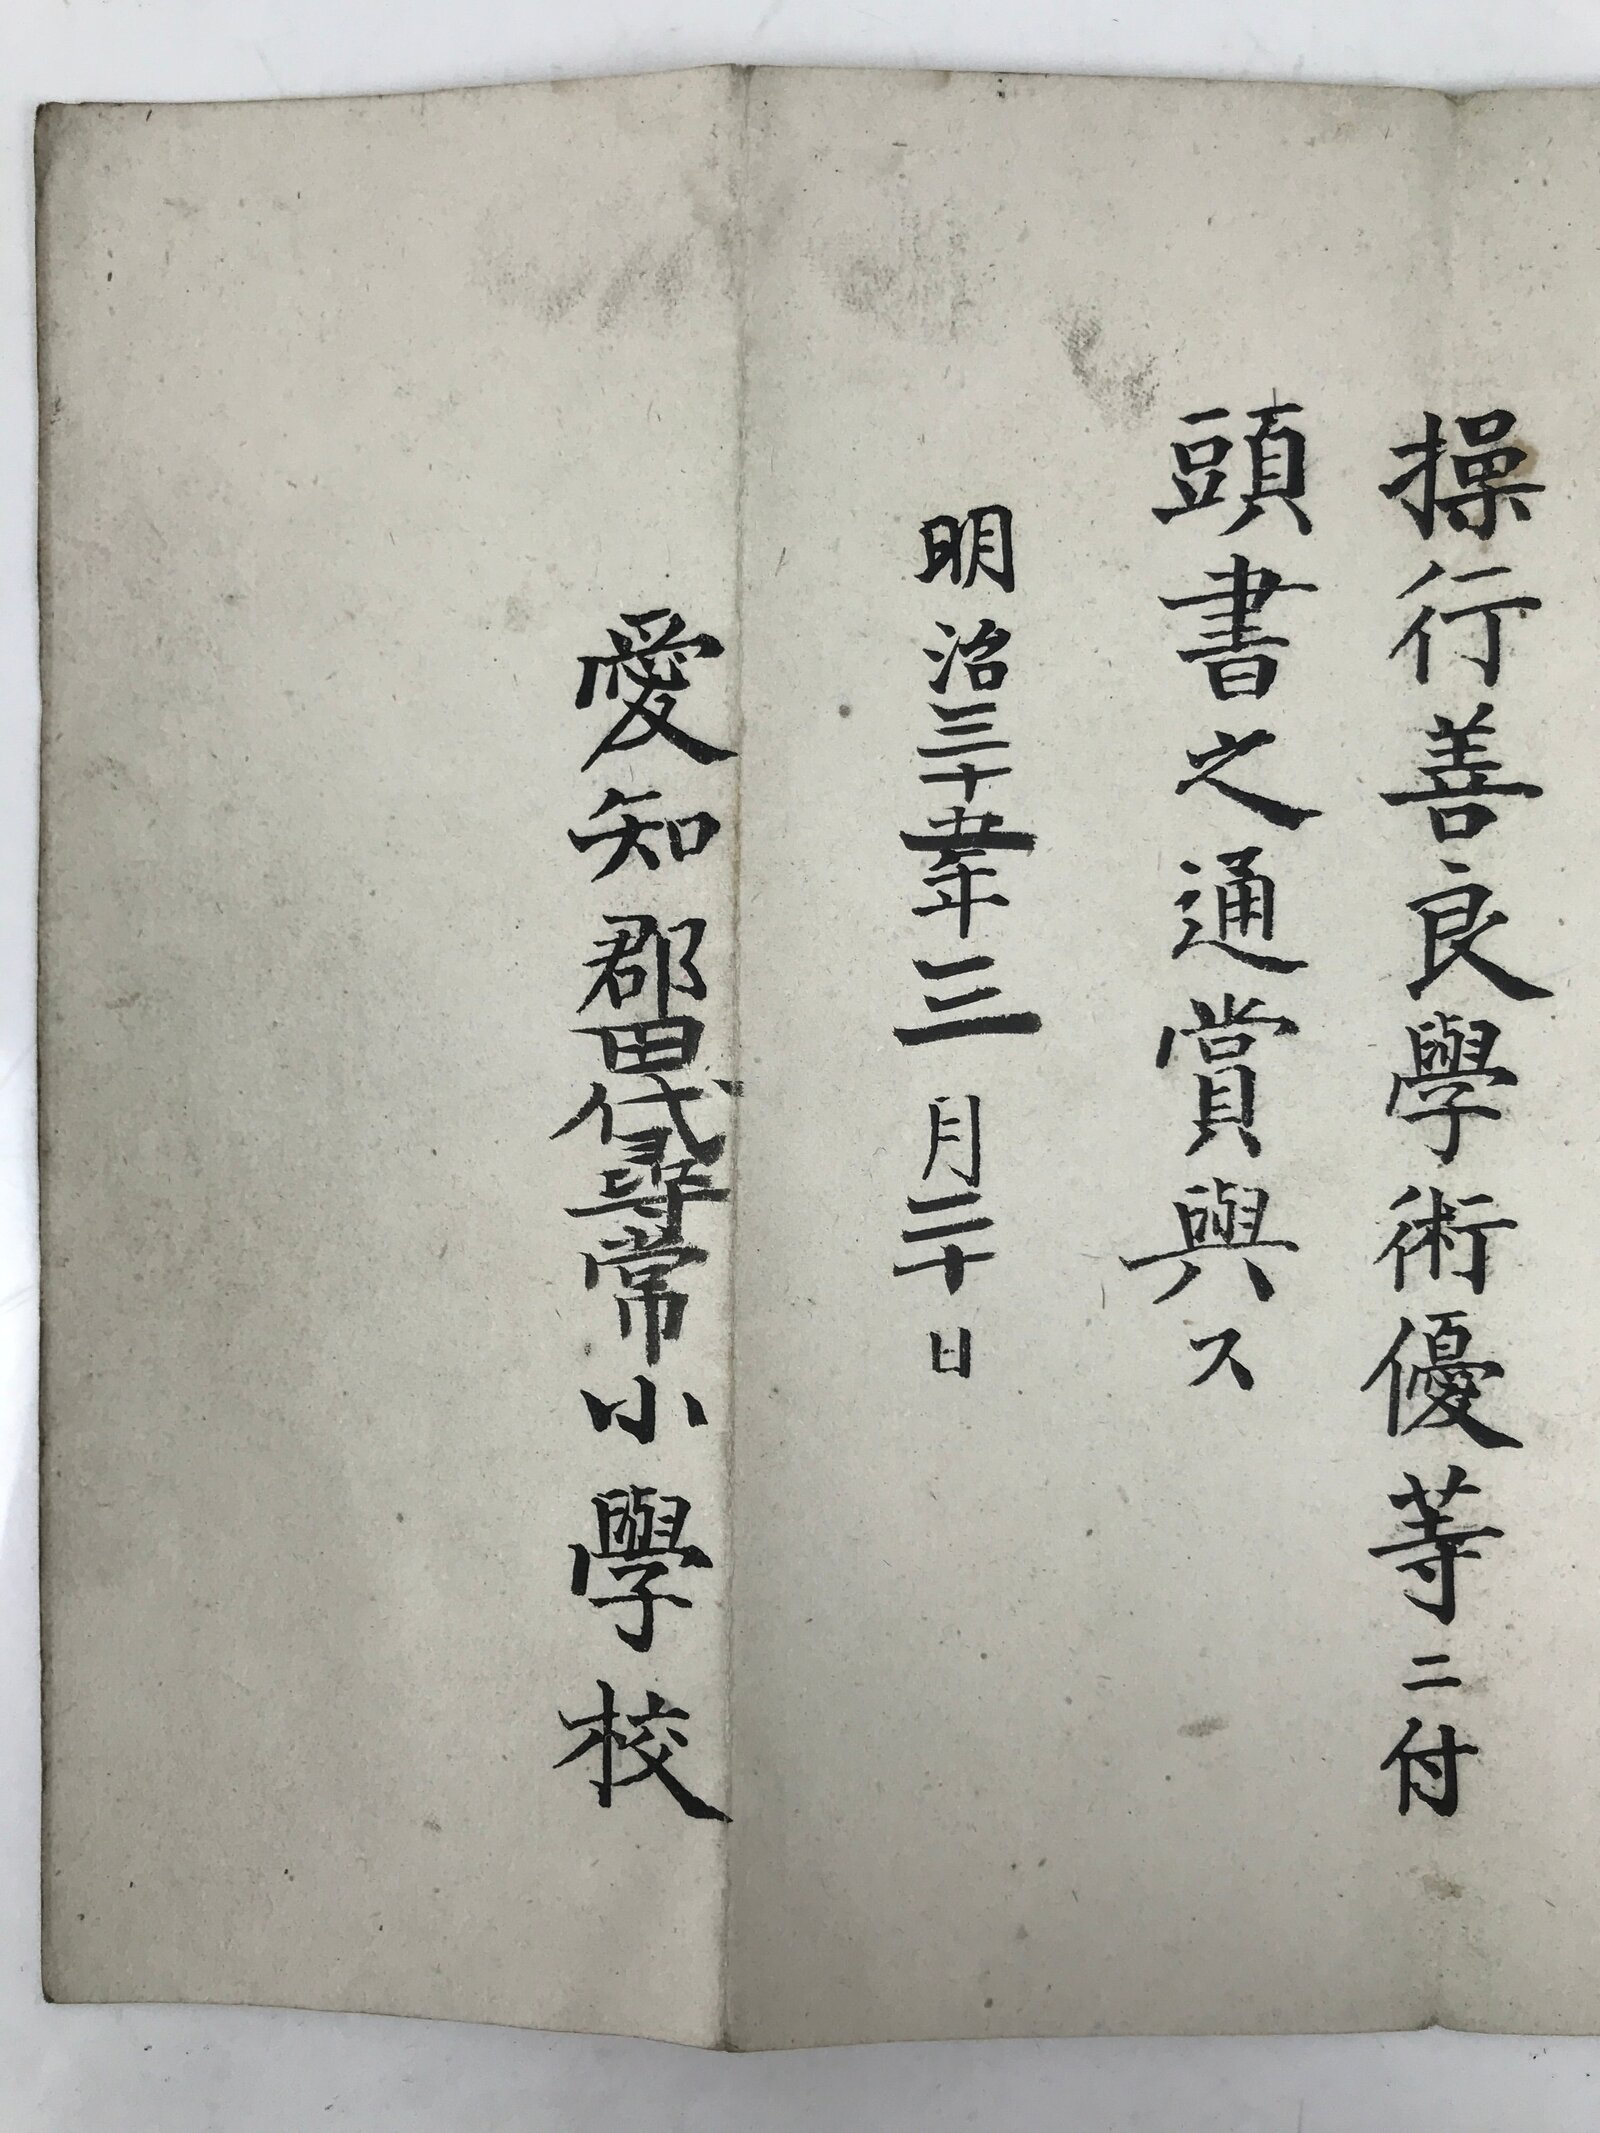 操行善良學術優等ニ付
頭書之通賞與ス
明治三十五年三月二十日
愛知郡田代尋常小學校